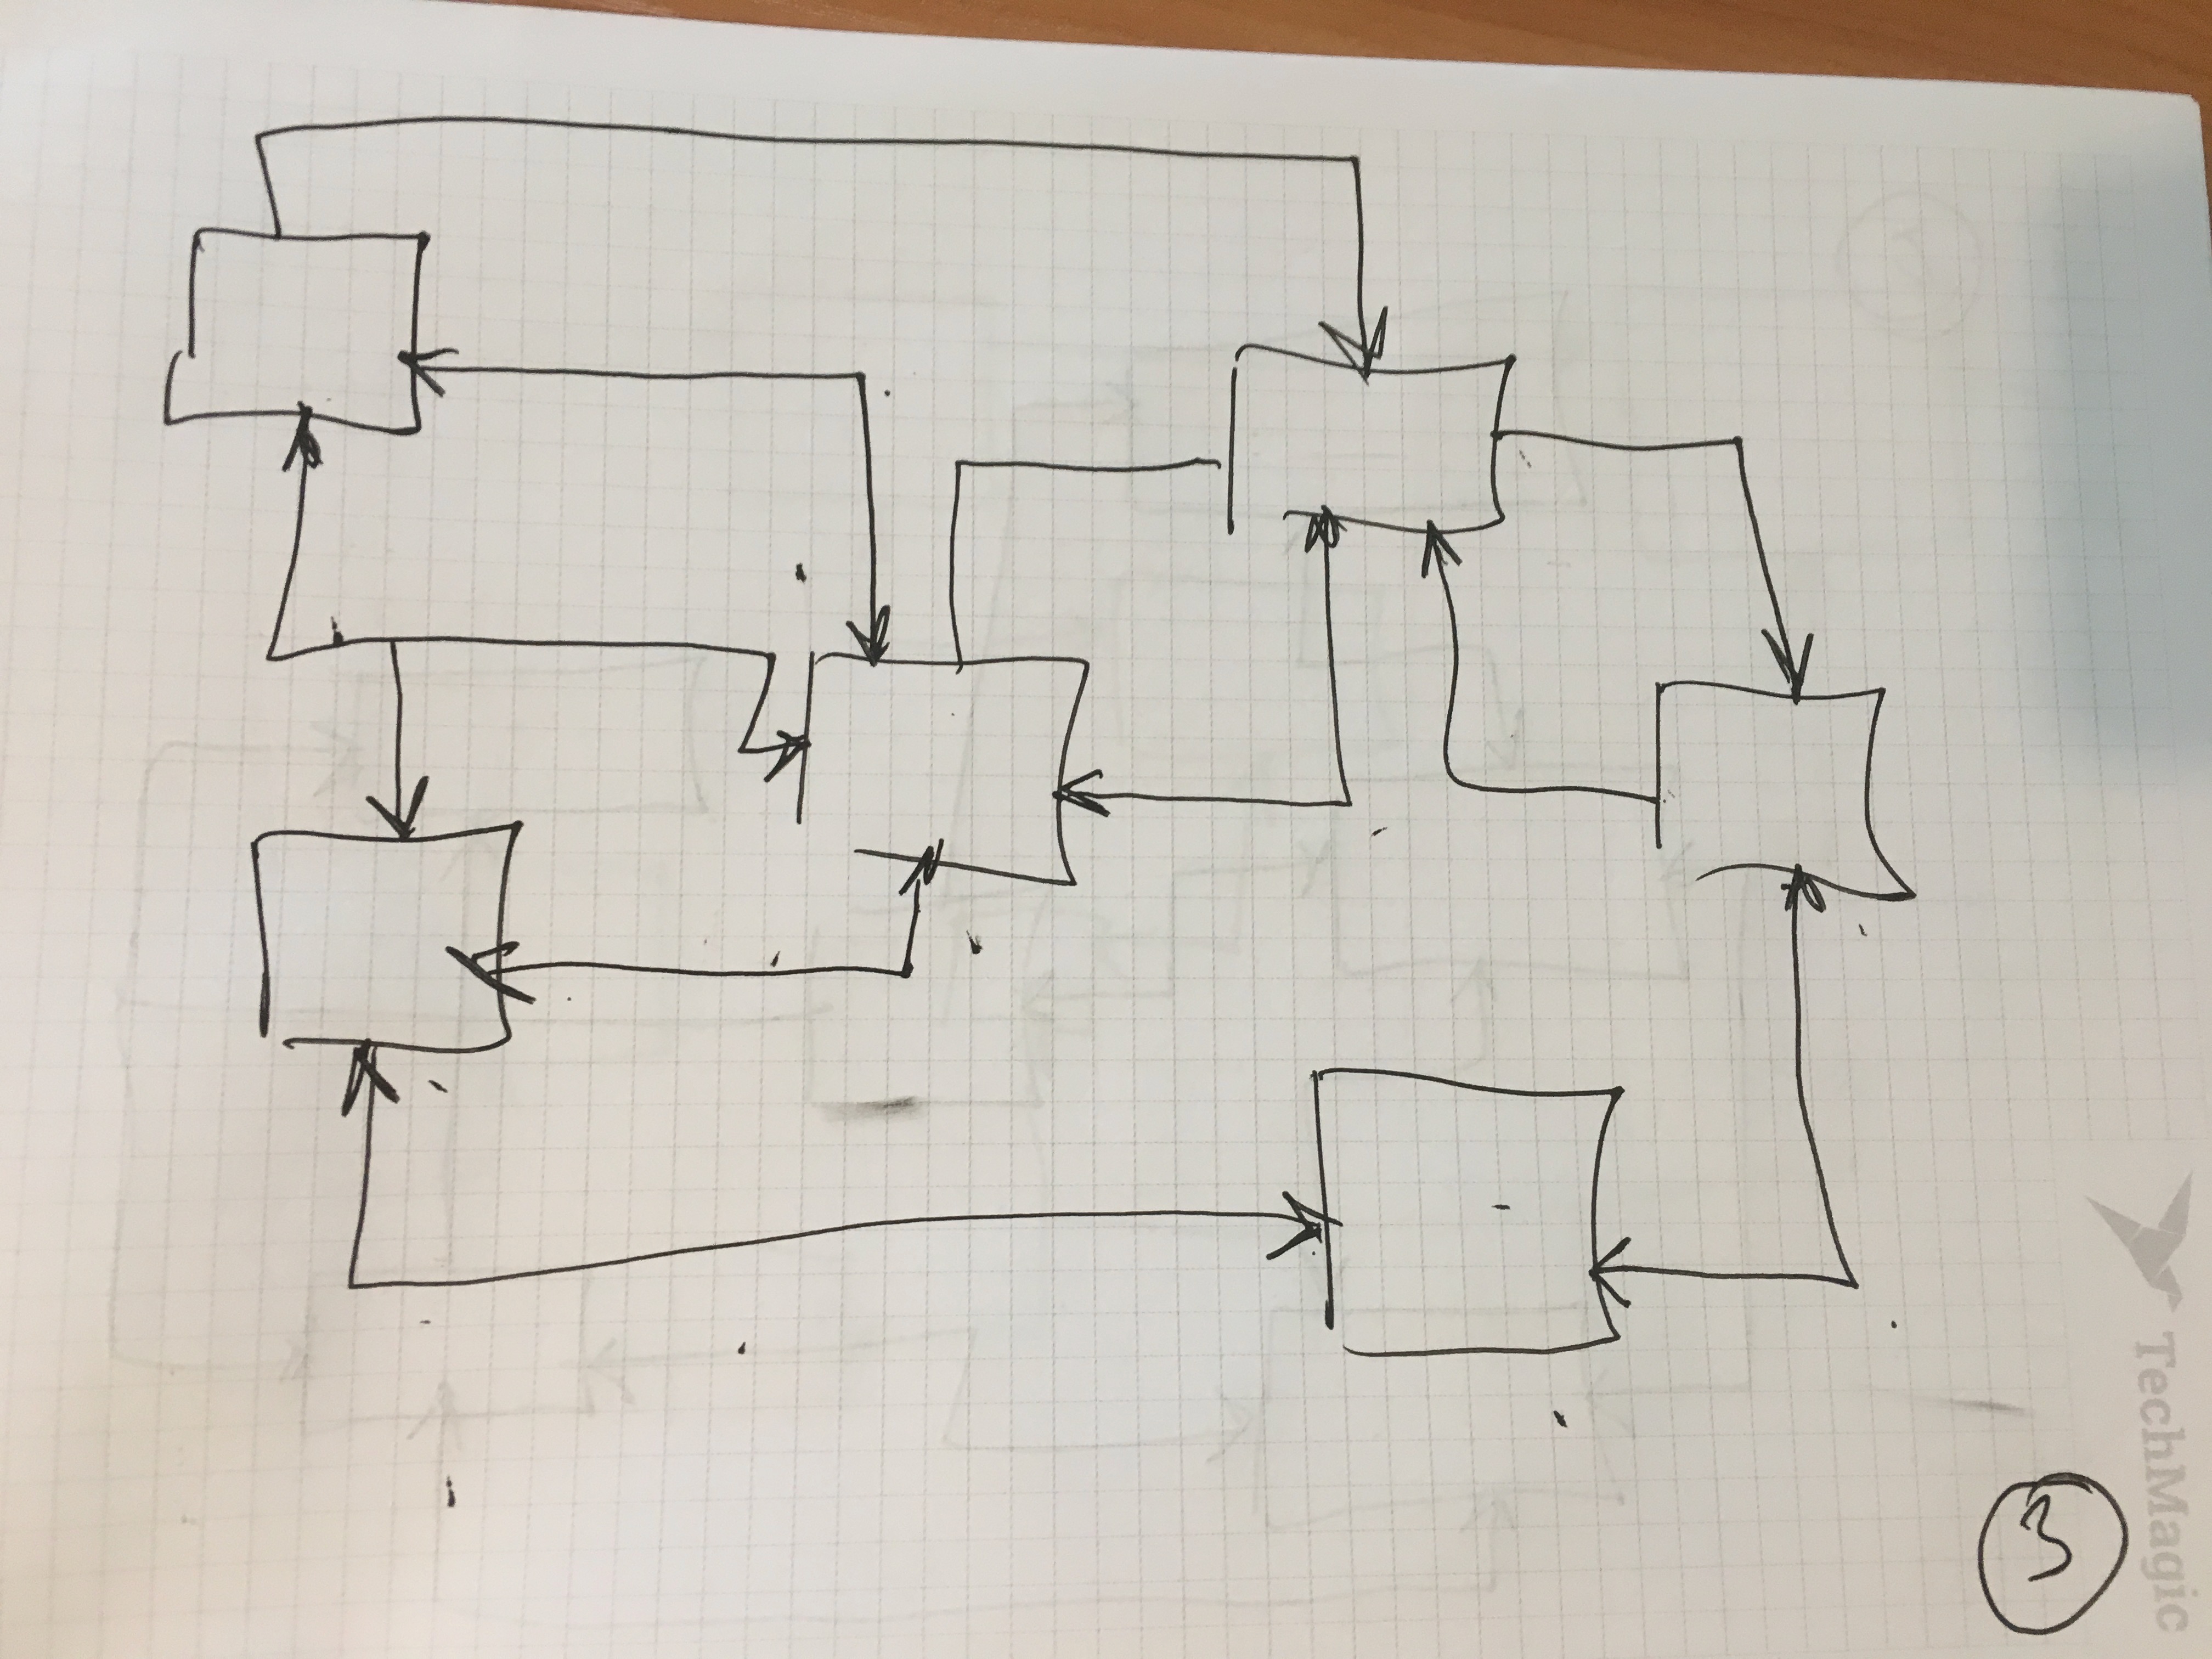 TechMagic
3